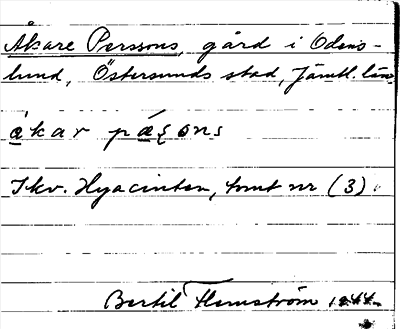 Åkare Perssons, gård i Odens-
lund, Östersunds stad, Jämtl. län
åkar pǽʂons
I kv. Hyacinten, tomt nr (3).
Bertil Flemström 1944.